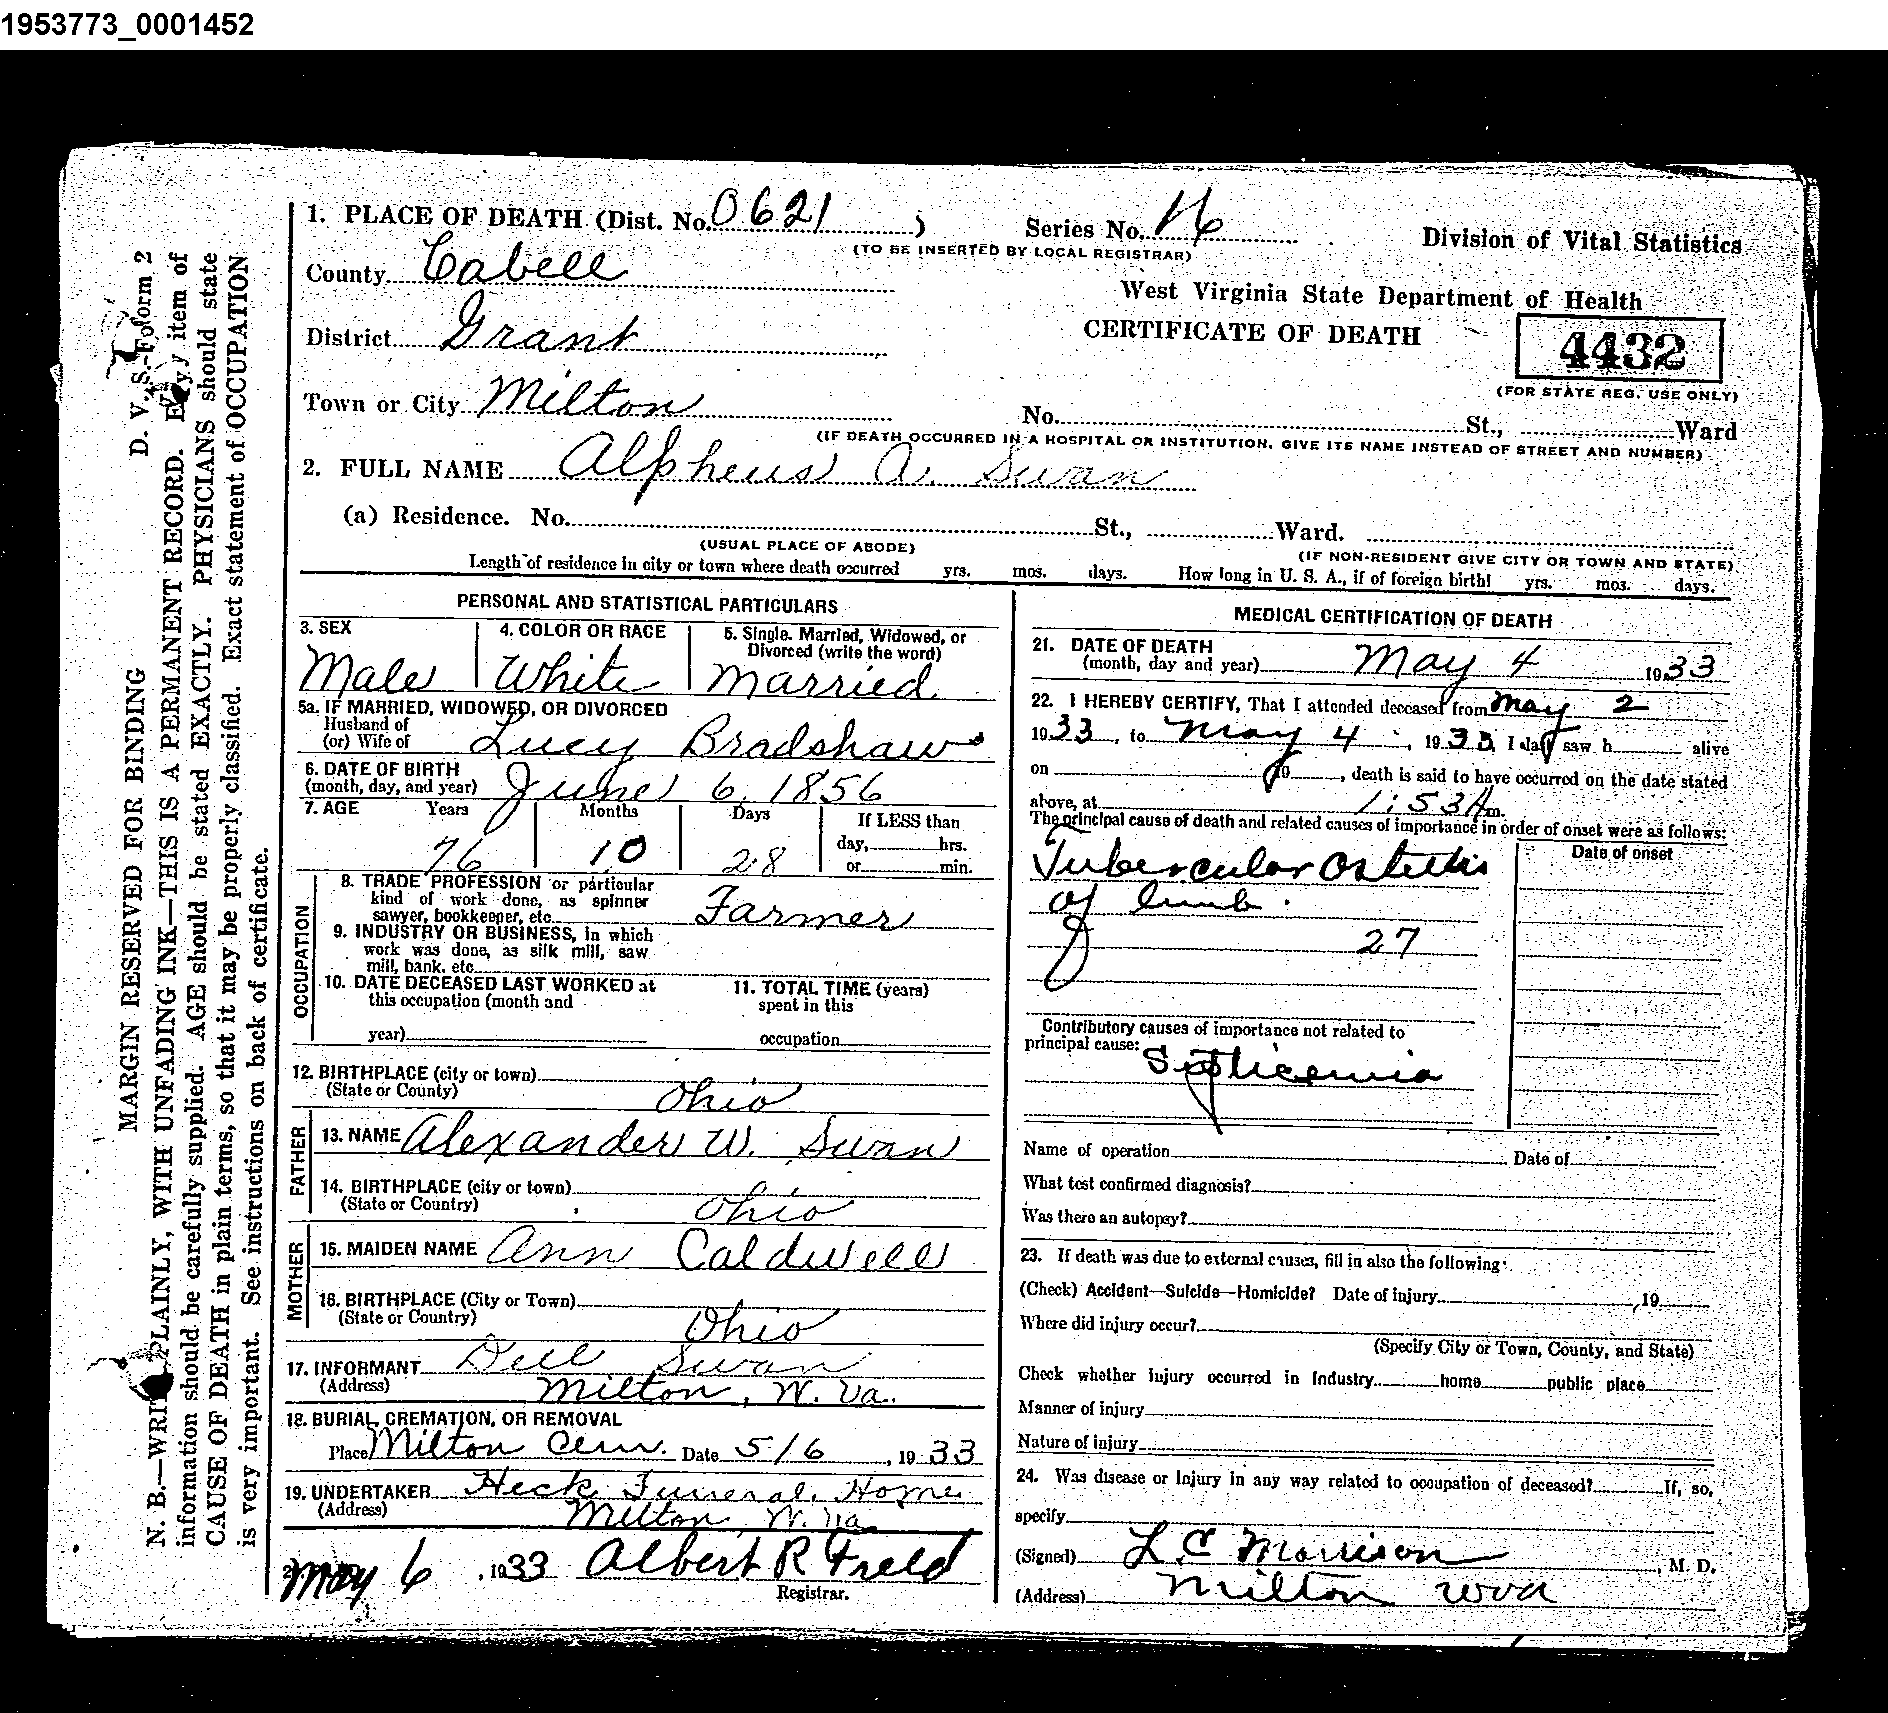 1953773_0001452
1. PLACE OF DEATH (Dist. No. 0621 ) Series No. 16
(TO BE INSERTED BY LOCAL REGISTRAR)
Division of Vital Statistics
County Cabell
West Virginia State Department of Health
District Grant
CERTIFICATE OF DEATH
4432
(FOR STATE REG. USE ONLY)
Town or City Milton
No. St., Ward
(IF DEATH OCCURRED IN A HOSPITAL OR INSTITUTION, GIVE ITS NAME INSTEAD OF STREET AND NUMBER)
2. FULL NAME Alpheus A. Swan
(a) Residence. No. St., Ward.
(USUAL PLACE OF ABODE) (IF NON-RESIDENT GIVE CITY OR TOWN AND STATE)
Length of residence in city or town where death occurred yrs. mos. days. How long in U. S. A., if of foreign birth! yrs. mos. days.
PERSONAL AND STATISTICAL PARTICULARS
3. SEX 4. COLOR OR RACE 5. Single, Married, Widowed, or
Divorced (write the word)
Male White Married
5a. IF MARRIED, WIDOWED, OR DIVORCED
Husband of
(or) Wife of Lucy Bradshaw
6. DATE OF BIRTH
(month, day, and year) June 6, 1856
7. AGE Years Months Days If LESS than
day, hrs.
76 10 28 or min.
OCCUPATION
8. TRADE PROFESSION or particular
kind of work done, as spinner
sawyer, bookkeeper, etc. Farmer
9. INDUSTRY OR BUSINESS, in which
work was done, as silk mill, saw
mill, bank, etc.
10. DATE DECEASED LAST WORKED at
this occupation (month and
year)
11. TOTAL TIME (years)
spent in this
occupation
12. BIRTHPLACE (city or town)
(State or County) Ohio
FATHER
13. NAME Alexander W. Swan
14. BIRTHPLACE (city or town)
(State or Country) Ohio
MOTHER
15. MAIDEN NAME Ann Caldwell
16. BIRTHPLACE (City or Town)
(State or Country) Ohio
17. INFORMANT Dell Swan
(Address) Milton, W. Va.
18. BURIAL, CREMATION, OR REMOVAL
Place Milton Cem. Date 5/6, 1933
19. UNDERTAKER Heck Funeral Home
(Address) Milton, W. Va.
May 6, 1933 Albert R Field
Registrar.
MEDICAL CERTIFICATION OF DEATH
21. DATE OF DEATH
(month, day and year) May 4 1933
22. I HEREBY CERTIFY, That I attended deceased from May 2
1933, to May 4, 1933, I last saw h alive
on 19 , death is said to have occurred on the date stated
above, at 1:53 A m.
The principal cause of death and related causes of importance in order of onset were as follows:
Date of onset
Tubercular Osteitis
of limb.
27
Contributory causes of importance not related to
principal cause:
Septicemia
Name of operation Date of
What test confirmed diagnosis?
Was there an autopsy?
23. If death was due to external causes, fill in also the following:
(Check) Accident—Suicide—Homicide? Date of injury ,19
Where did injury occur?
(Specify City or Town, County, and State)
Check whether Injury occurred in Industry home public place
Manner of injury
Nature of injury
24. Was disease or Injury in any way related to occupation of deceased? If, so,
specify
(Signed) L. C Morrison , M. D.
(Address) Milton W Va
D. V. S.-Form 2
MARGIN RESERVED FOR BINDING
N. B.—WRITE PLAINLY, WITH UNFADING INK—THIS IS A PERMANENT RECORD. Every item of
information should be carefully supplied. AGE should be stated EXACTLY. PHYSICIANS should state
CAUSE OF DEATH in plain terms, so that it may be properly classified. Exact statement of OCCUPATION
is very important. See instructions on back of certificate.